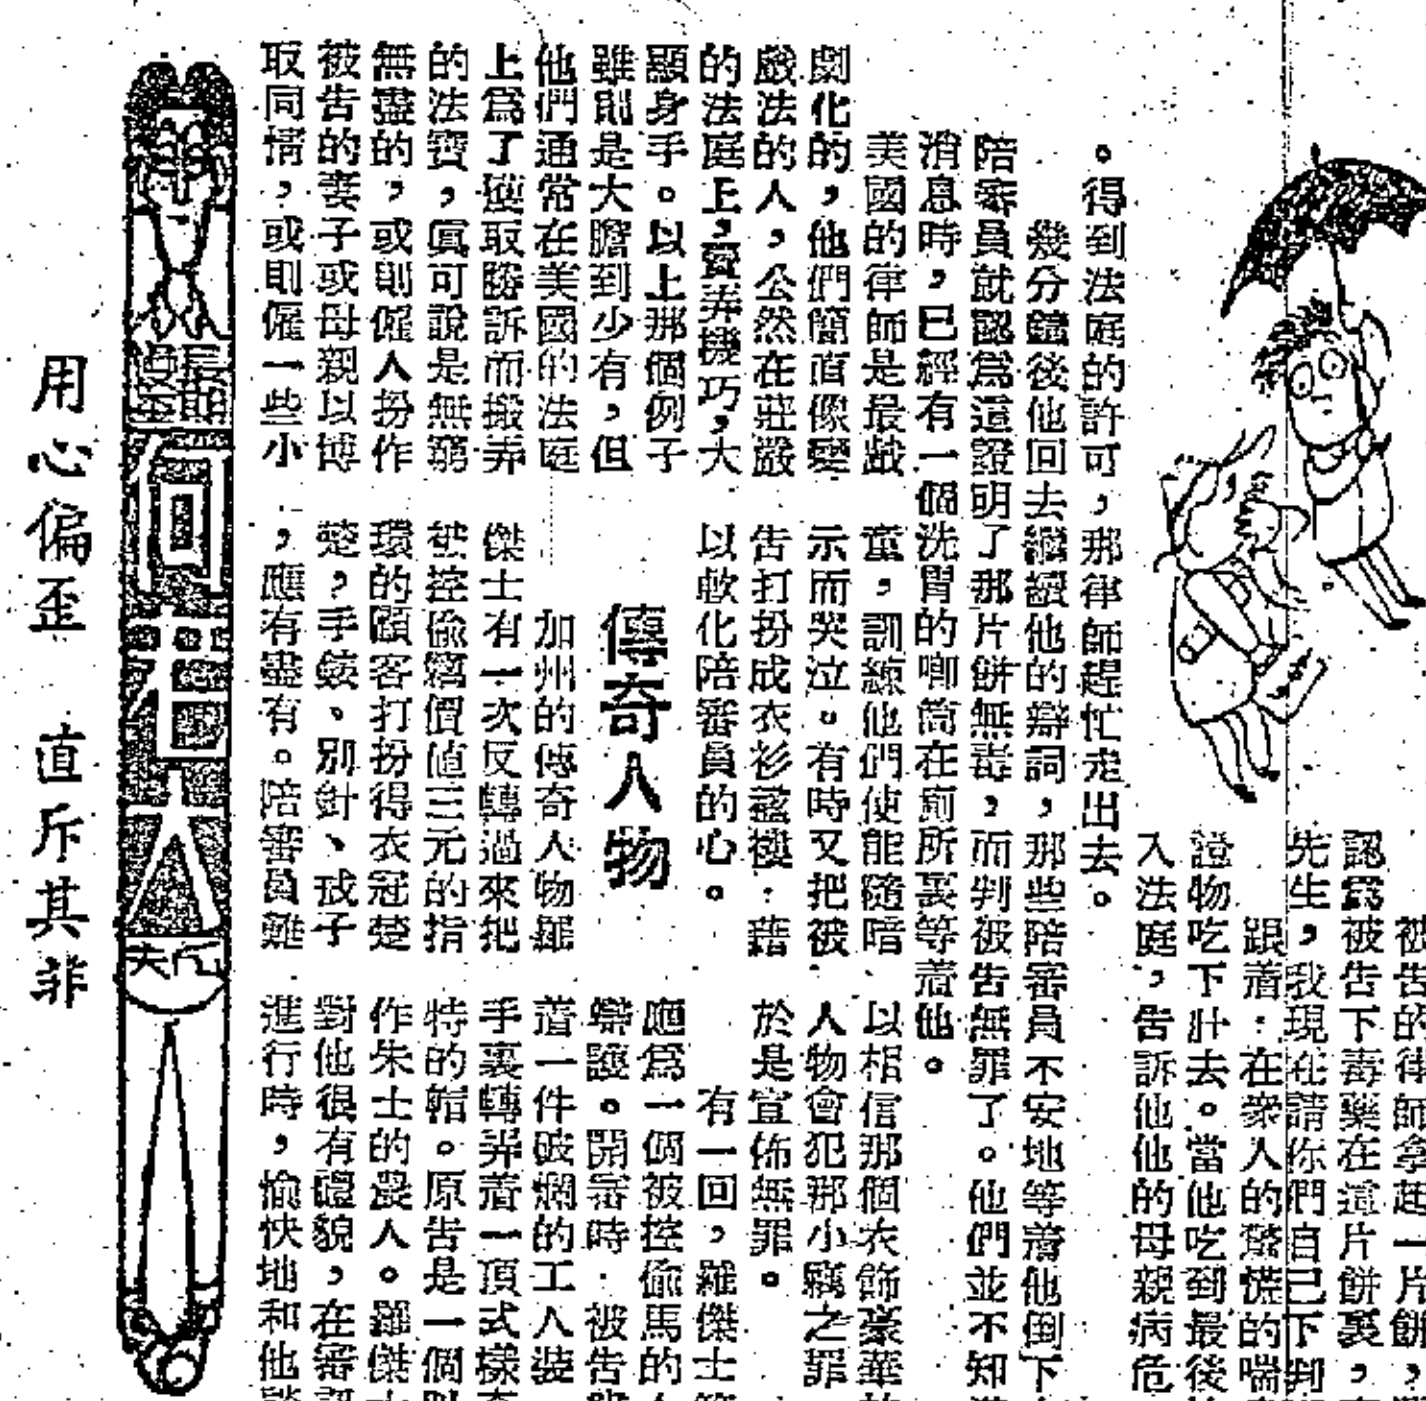 被告的律師拿起一片餅,
認爲被告下毒藥在這片餅裏,
先生,我現在請你們自己下判
跟著:在衆人的驚慌的喘
證物吃下肚去。當他吃到最後
入法庭,告訴他他的母親病危
。得到法庭的許可,那律師趕忙走出去。
幾分鐘後他回去繼續他的辯詞,那些陪審員不安地等著他倒下
陪審員就認爲這證明了那片餅無毒,而判被告無罪了。他們並不知
消息時,已經有一個洗胃的唧筒在廁所裏等着他。
美國的律師是最戲
劇化的,他們簡直像變
戲法的人,公然在莊嚴
的法庭上,賣弄機巧,大
顯身手。以上那個例子
雖則是大膽到少有,但
他們通常在美國的法庭
上爲了獲取勝訴而搬弄
的法寶,眞可說是無窮
無盡的,或則僱人扮作
被告的妻子或母親以博
取同情,或則僱一些小
童,訓練他們使能隨暗
示而哭泣。有時又把被
告打扮成衣衫襤褸.藉
以軟化陪審員的心。
傳奇人物
加州的傳奇人物羅
傑士有一次反轉過來把
被控偷竊價值三元的指
環的顧客打扮得衣冠楚
楚,手錶、別針、戒子
,應有盡有。陪審員難
以相信那個衣飾豪華
人物會犯那小竊之罪
於是宣佈無罪。
有一回,羅傑士
應爲一個被控偷馬的
辯護。開審時.被告
著一件破爛的工人裝
手裏轉弄着一頂式樣
特的帽。原告是一個
作朱士的農人。羅傑
對他很有禮貌,在審
進行時,愉快地和他
星期
何老人
用心偏歪 直斥其非